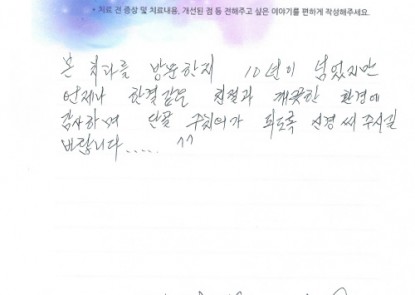 • 치료 전 증상 및 치료내용, 개선된 점 등 전해주고 싶은 이야기를 편하게 작성해주세요.
본 치과를 방문한지 10년이 넘었지만
언제나 한결같은 친절과 깨끗한 환경에
감사하며 단골 주치의가 되도록 신경 써 주시길
바랍니다..... ^^